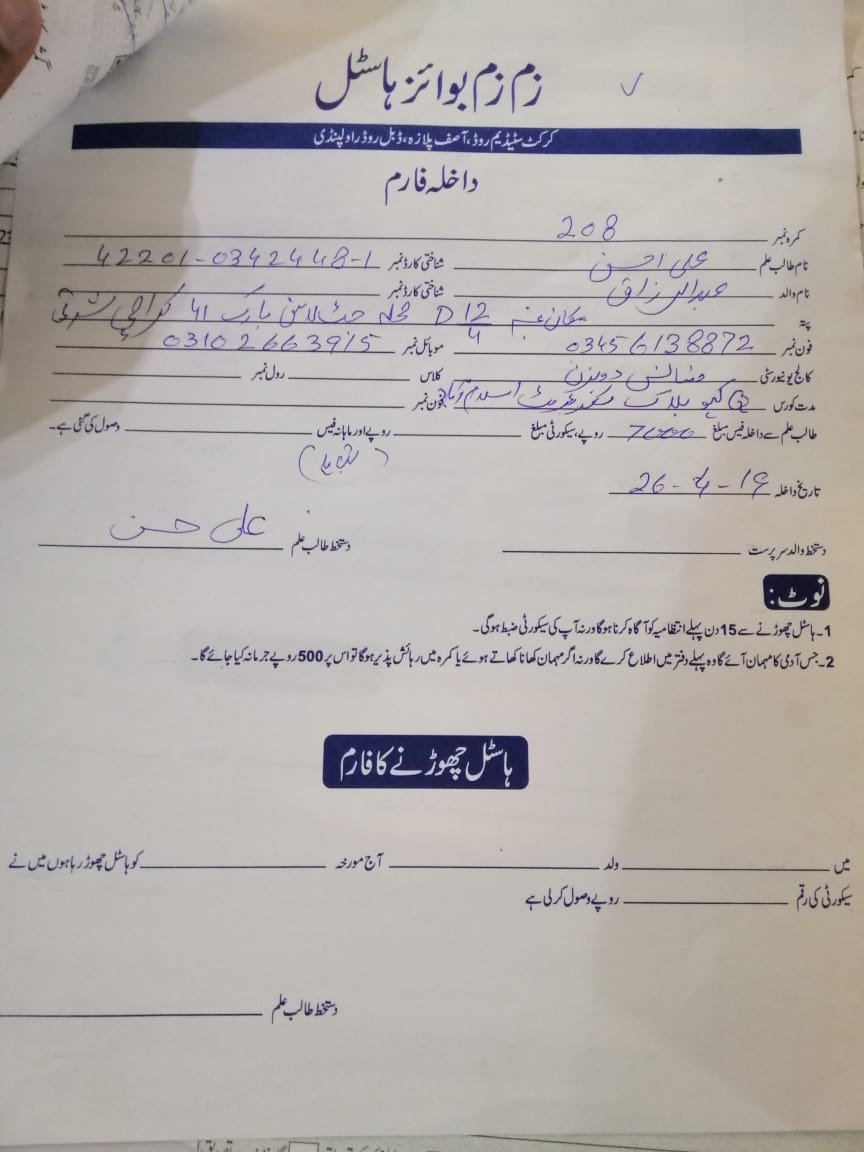 زم زم بوائز ہاسٹل
کرکٹ سٹیڈیم روڈ، آصف پلازہ، ڈبل روڈ راولپنڈی
داخلہ فارم
کمرہ نمبر 208
نام طالب علم علی احسن شناختی کارڈ نمبر 42201-0342448-1
نام والد عبدالرزاق شناختی کارڈ نمبر
پتہ مکان نمبر D 12/4 محلہ جٹ لائن بارک 41 کراچی شرقی
فون نمبر 03456138872 موبائل نمبر 03102663915
کالج یونیورسٹی فنانس دویزن کلاس رول نمبر
مدت کورس کیو بلاک اسلام آباد فون نمبر
طالب علم سے داخلہ فیس مبلغ 7000 روپے، سیکورٹی مبلغ روپے اور ماہانہ فیس وصول کی گئی ہے۔
تاریخ داخلہ 26-4-19
دستخط والد سرپرست دستخط طالب علم علی حسن
نوٹ:
1۔ ہاسٹل چھوڑنے سے 15 دن پہلے انتظامیہ کو آگاہ کرنا ہوگا ورنہ آپ کی سیکورٹی ضبط ہوگی۔
2۔ جس آدمی کا مہمان آئے گا وہ پہلے دفتر میں اطلاع کرے گا ورنہ اگر مہمان کھانا کھاتے ہوئے یا کمرہ میں رہائش پذیر ہوگا تو اس پر 500 روپے جرمانہ کیا جائے گا۔
ہاسٹل چھوڑنے کا فارم
میں ولد آج مورخہ کو ہاسٹل چھوڑ رہا ہوں میں نے
سیکورٹی کی رقم روپے وصول کر لی ہے
دستخط طالب علم